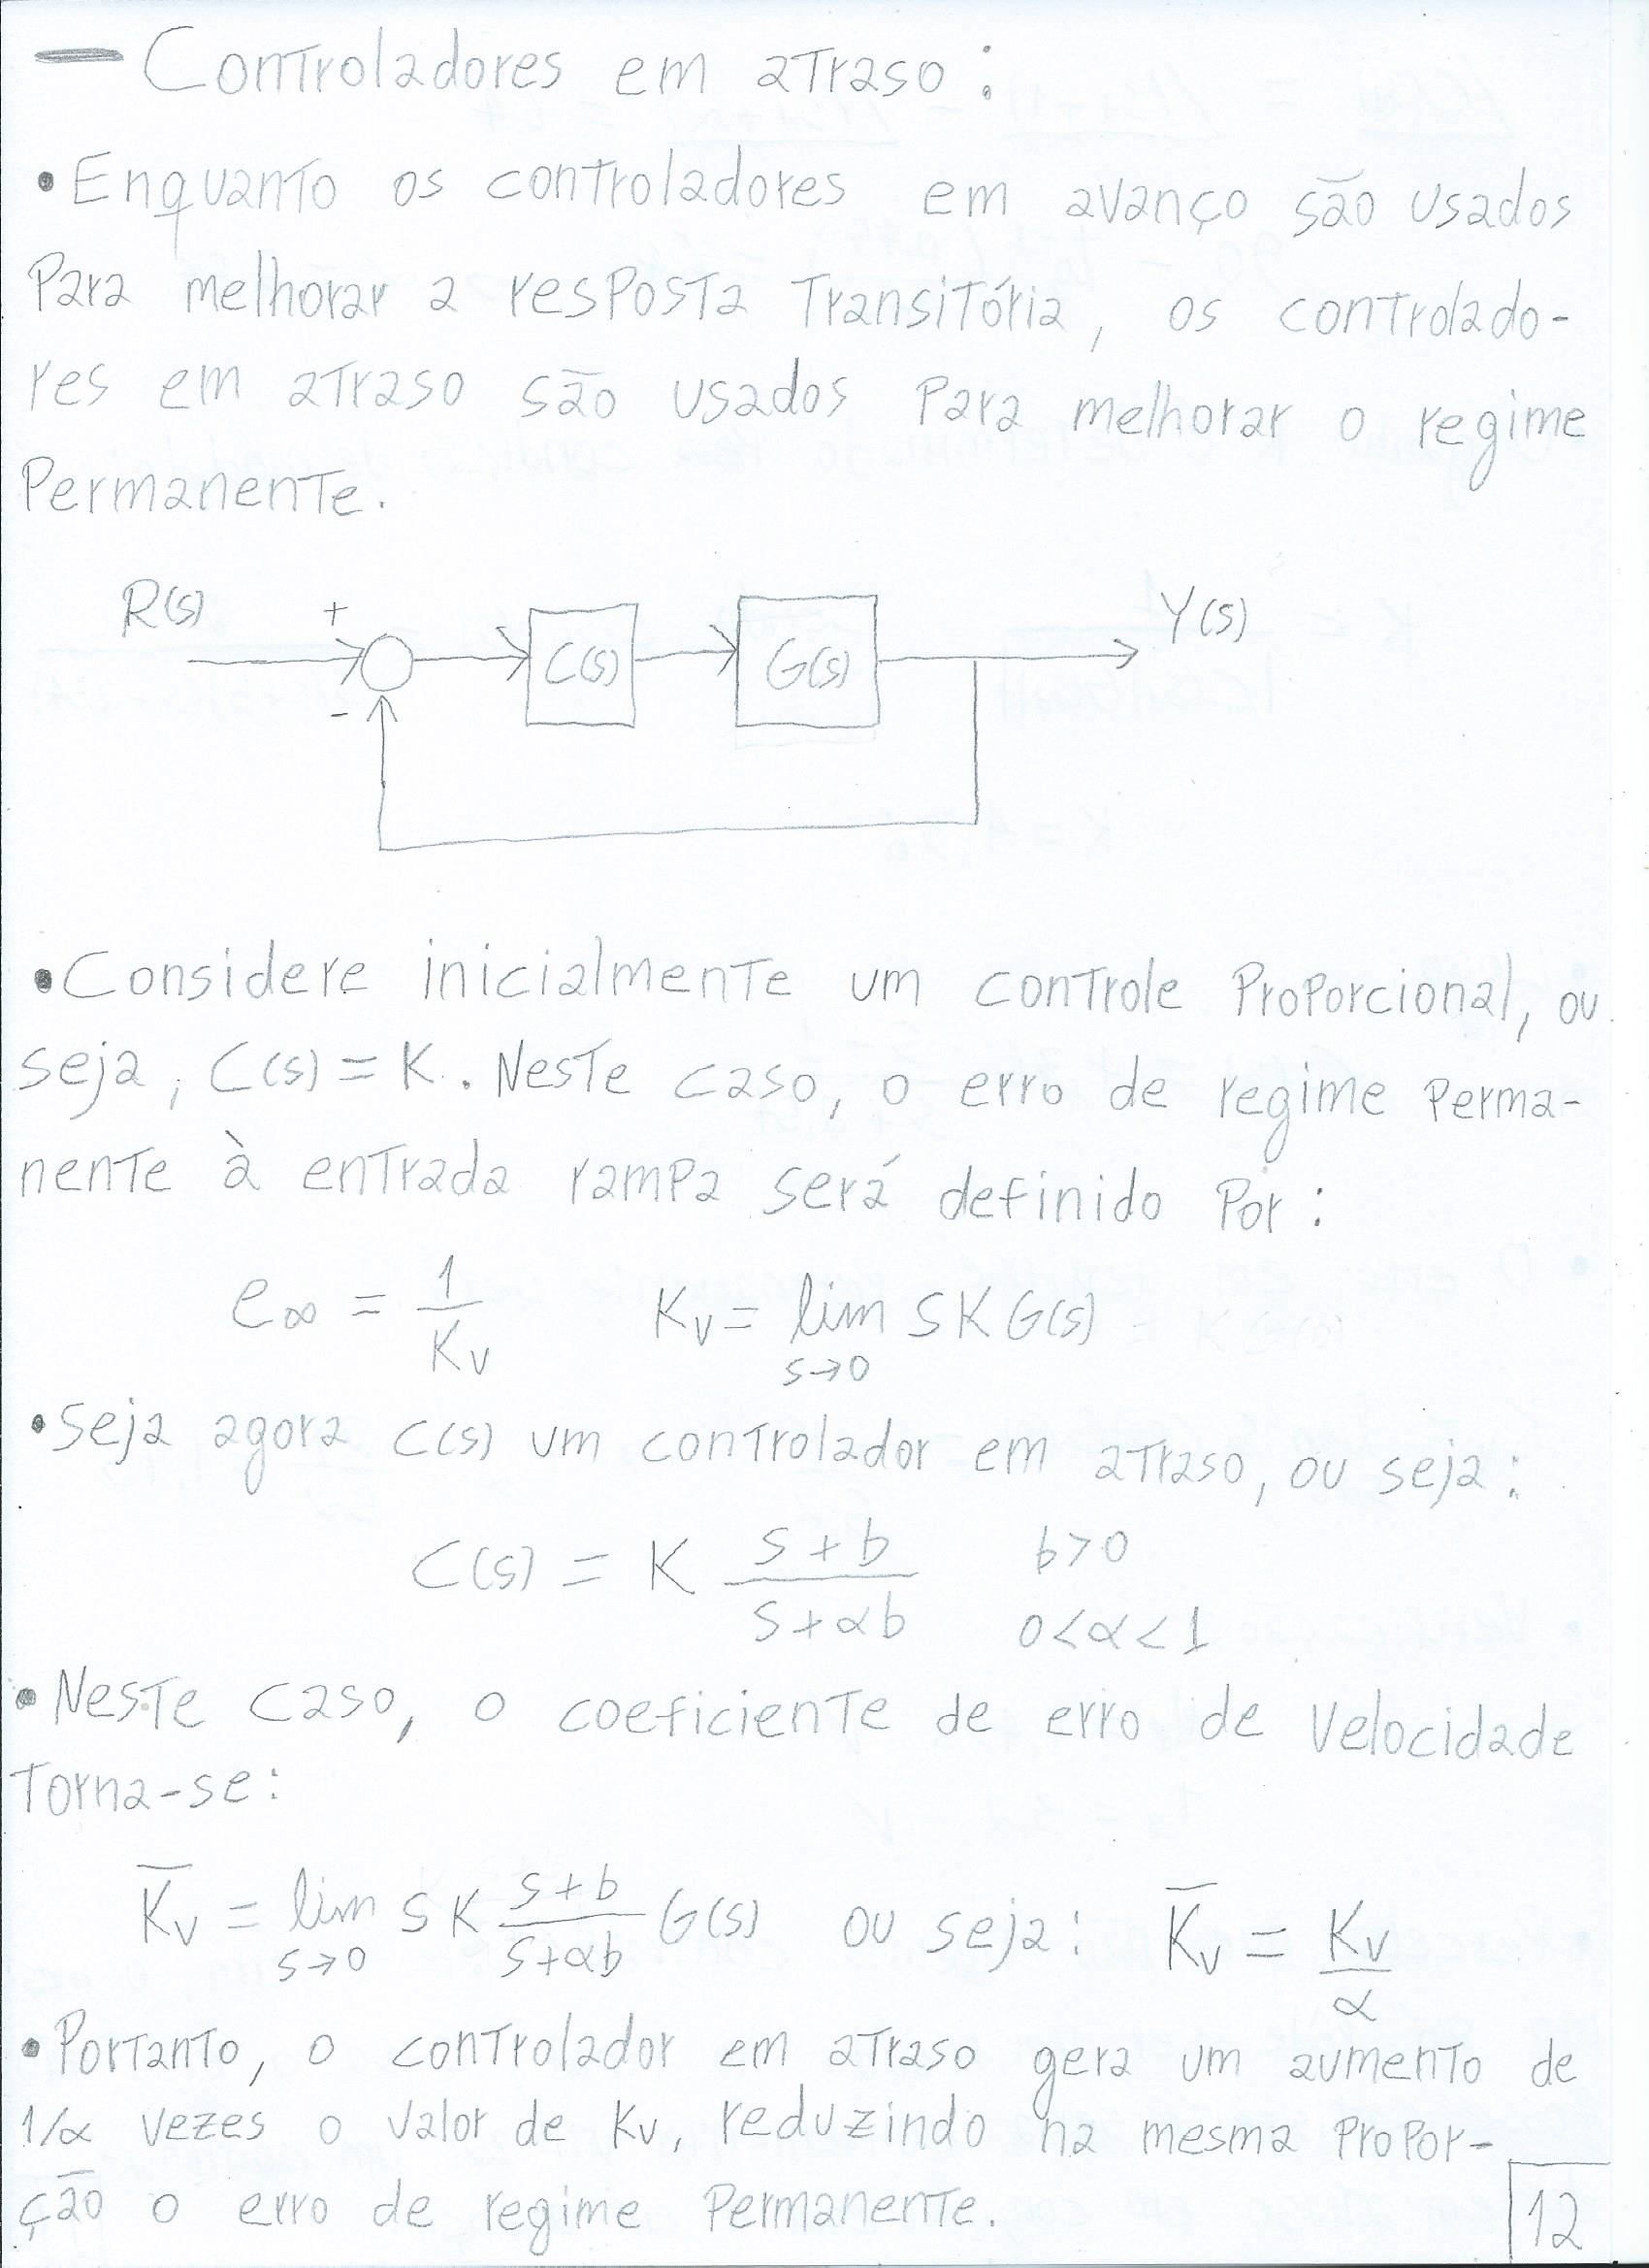 — Controladores em atraso:
• Enquanto os controladores em avanço são usados
Para melhorar a resposta transitória, os controlado-
res em atraso são usados Para melhorar o regime
Permanente.
R(s) + - C(s) G(s) Y(s)
• Considere inicialmente um controle Proporcional, ou
seja, C(s) = K. Neste caso, o erro de regime Perma-
nente à entrada rampa será definido Por:
e∞ = 1/Kv Kv = lim s→0 s K G(s)
• Seja agora C(s) um controlador em atraso, ou seja:
C(s) = K (s+b)/(s+αb) b>0 0<α<1
• Neste caso, o coeficiente de erro de velocidade
torna-se:
K̅v = lim s→0 s K (s+b)/(s+αb) G(s) ou seja: K̅v = Kv/α
• Portanto, o controlador em atraso gera um aumento de
1/α vezes o valor de Kv, reduzindo na mesma Propor-
ção o erro de regime Permanente.
12